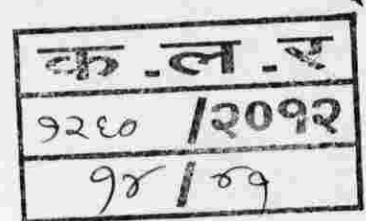 क.ल.र
१२६० /२०१२
१४/४१